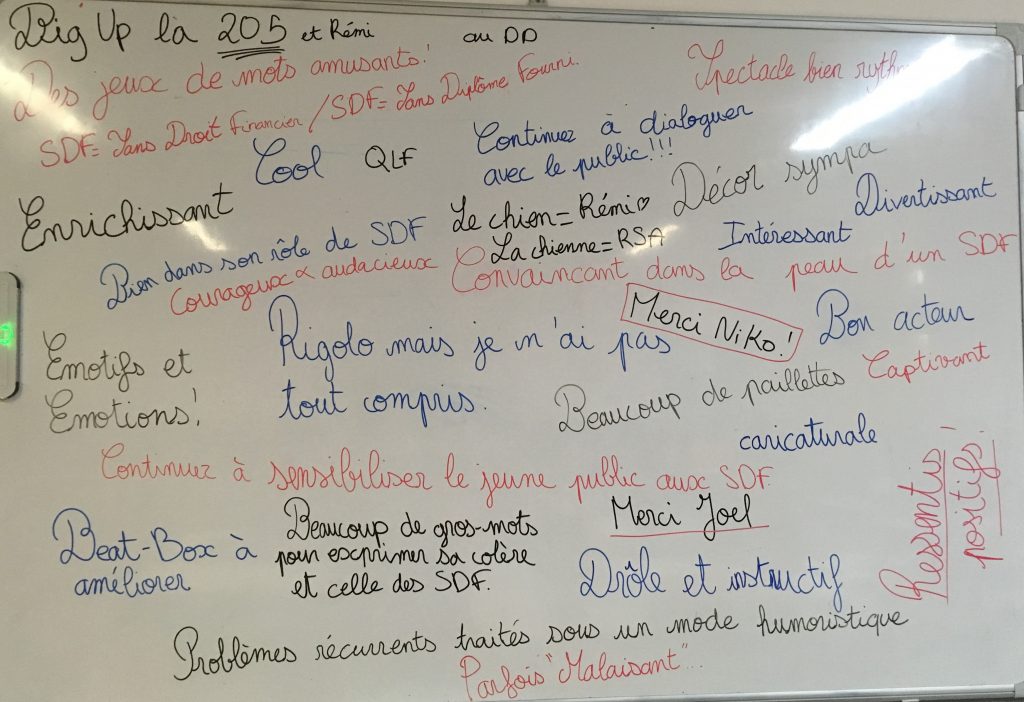 Big Up la 205 et Rémi au DD
Des jeux de mots amusants!
Spectacle bien
SDF= Sans Droit Financier / SDF= Sans Diplôme Fourni.
Cool
QLF
Continuez à dialoguer
avec le public!!!
Enrichissant
Le chien= Rémi♡
La chienne= RSA
Décor sympa
Divertissant
Intéressant
Bien dans son rôle de SDF
Courageux & audacieux
Convaincant dans la peau d'un SDF
Merci Niko!
Bon acteur
Emotifs et
Emotions!
Rigolo mais je n'ai pas
tout compris.
Beaucoup de paillettes
Captivant
caricaturale
Continuez à sensibiliser le jeune public aux SDF
Ressentis
positifs!
Beat-Box à
améliorer
Beaucoup de gros-mots
pour exprimer sa colère
et celle des SDF.
Merci Joel
Drôle et instructif
Problèmes récurrents traités sous un mode humoristique
Parfois "Malaisant"...